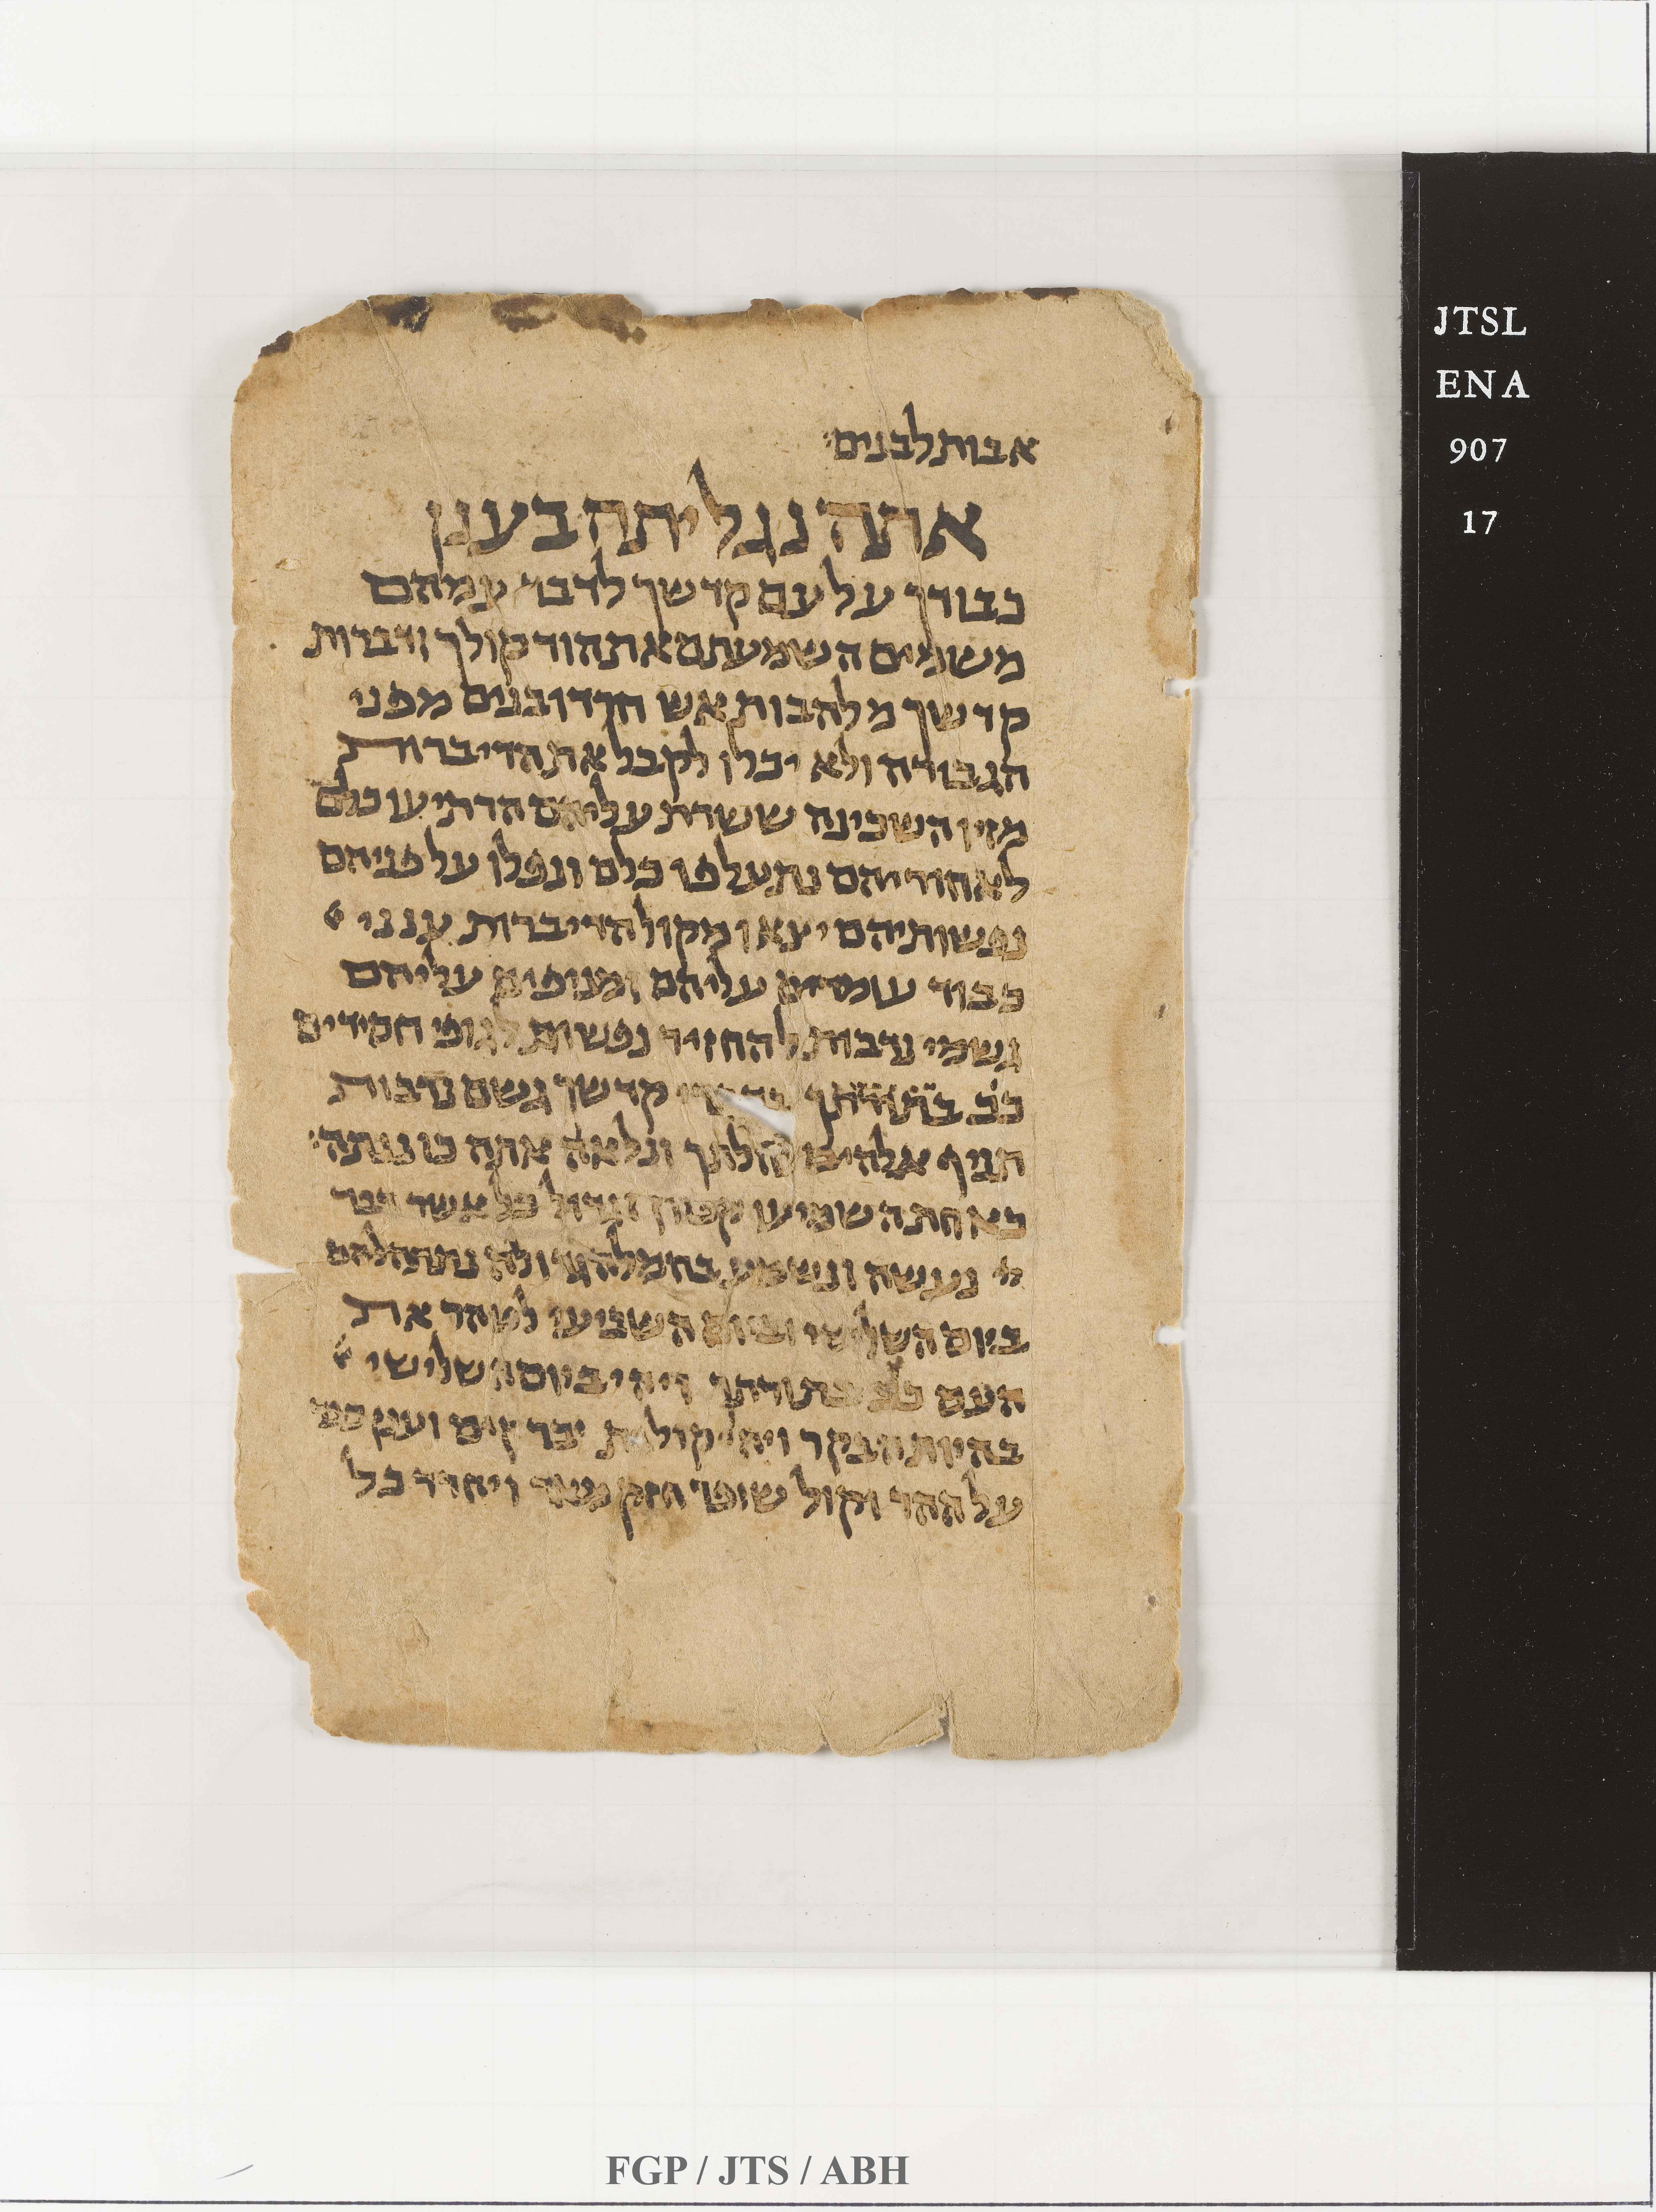 אבות לבנים׃
אתה נגליתה בענן
כבודך על עם קדשך לדבר עמהם
משמים השמעתם את הוד קולך ודברות
קדשך מלהבות אש חרדו בנים מפני
הגבורה ולא יכלו לקבל את הדיברות
מזיו השכינה ששרת עליהם הרתיעו כולם
לאחוריהם נתעלפו כלם ונפלו על פניהם
נפשותיהם יצאו מקול הדיברות ענני
כבוד עומדים עליהם ומניפים עליהם
גשמי נדבות להחזיר נפשות לגופי חסידים
ככ בתורתך קדשך גשם נדבות
תניף אלהים נחלתך ונלאה אתה כוננתה׃
כאחת השמיעו קטון וגדול כל אשר דבר
ייי נעשה ונשמע בחמלה גדולה נתתה להם
ביום השלישי וביום השביעי לטהר את
העם ככ בתורתך ויהי ביום השלישי
בהיות הבקר ויהי קולות וברקים וענן כבד
על ההר וקול שופר חזק מאד ויחרד כל
JTSL
ENA
907
17
FGP / JTS / ABH